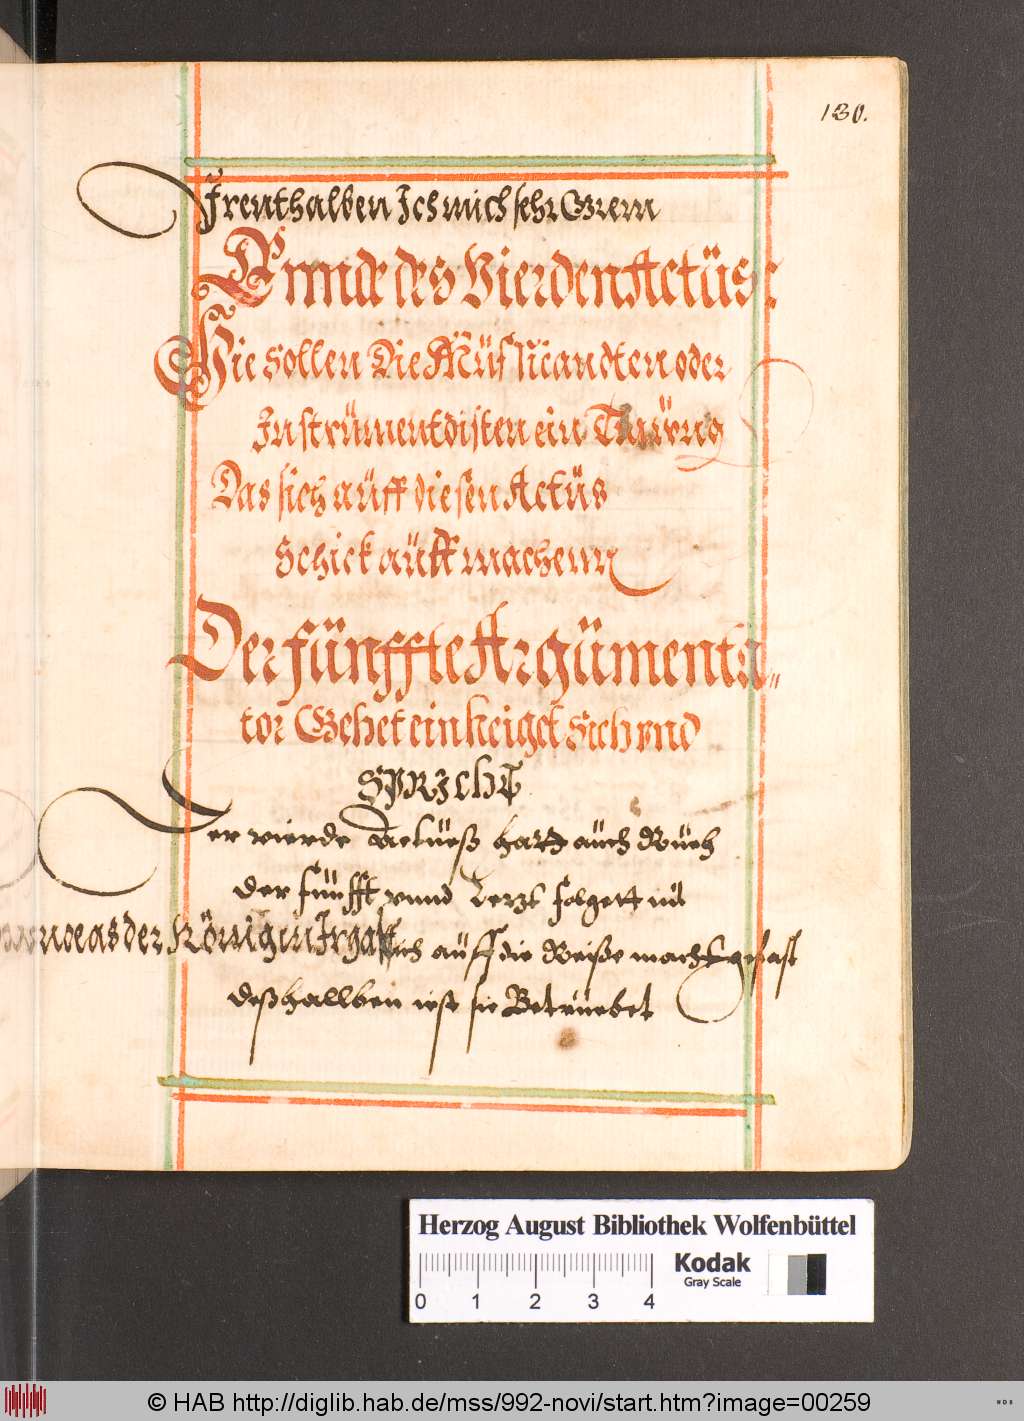 130.
Irenthalben Ich mich sehr Grem
Ennde des Vierden Actüs
Hie Sollen Die Müssicandten oder
Instrümentdisten ein
Das sich aüff diesen Actüs
Schick aüff machenn
Der fünffte Argümenta„
tor Gehet ein Neiget Sich vnd
SPRICHT
Der vierde Actueß hatt auch Rueh
der fünfft vnnd Letzt folgett
der König in
auff die Reiße
deßhallben ist sie Betruebet
Herzog August Bibliothek Wolfenbüttel
Kodak
Gray Scale
0 1 2 3 4
© HAB http://diglib.hab.de/mss/992-novi/start.htm?image=00259